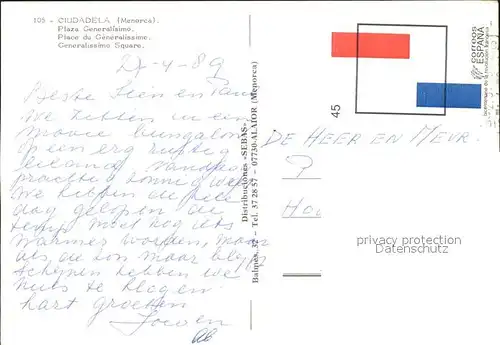 105 - CIUDADELA (Menorca).
Plaza Generalísimo.
Place du Généralissime.
Generalissimo Square.
27-4-89
Beste
We zitten in een
mooie bungalow
op een erg rustig
eiland
prachtig zonnig weer
We hebben de hele
dag gelopen de
temp. moet nog iets
warmer worden, maar
als de zon maar blijft
schijnen hebben we
niets te klagen
hart groeten
Distribuciones «SEBAS»
Balmes, 32 - Tel. 37 28 57 - 07730-ALAIOR (Menorca)
45
correos
ESPAÑA
DE HEER EN MEVR.
P
HOL
privacy protection
Datenschutz